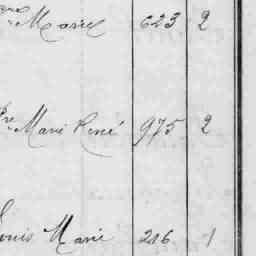 Marie 623 2
Marie René 975 2
Louis Marie 216 1